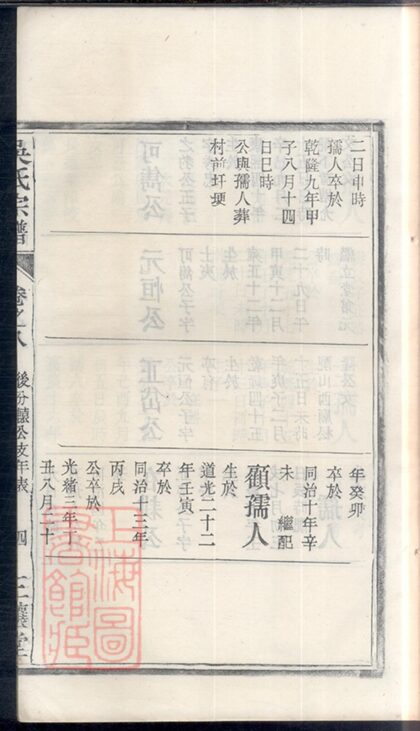 二日申時
孺人卒於
乾隆九年甲
子八月十四
日巳時
公與孺人葬
村前圩埂
年癸卯
卒於
同治十年辛
未 繼配
顧孺人
生於
道光二十二
年壬寅
卒於
同治十三年
丙戌
公卒於
光緒三年丁
丑八月二十
吳氏宗譜
卷之八
後份
公支年表
四
上海圖書館藏